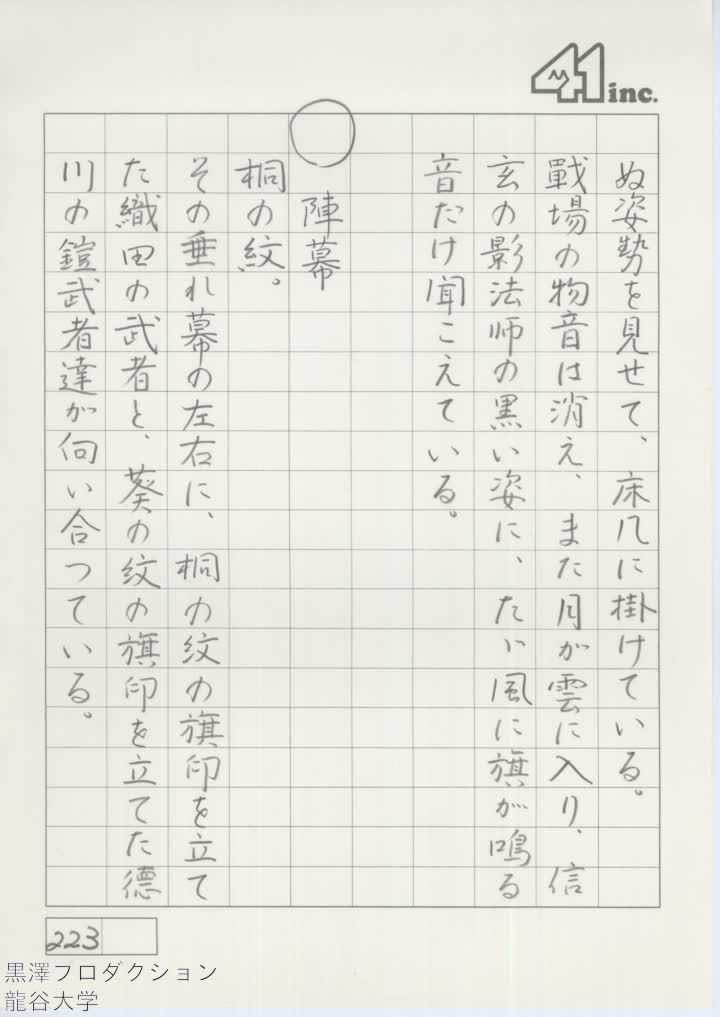 41 inc.
ぬ姿勢を見せて、床几に掛けている。
戰場の物音は消え、また月が雲に入り、信
玄の影法師の黒い姿に、たゞ風に旗が鳴る
音だけ聞こえている。
○ 陣幕
桐の紋。
その垂れ幕の左右に、桐の紋の旗印を立て
た織田の武者と、葵の紋の旗印を立てた德
川の鎧武者達が向い合つている。
223
黒澤プロダクション
龍谷大学